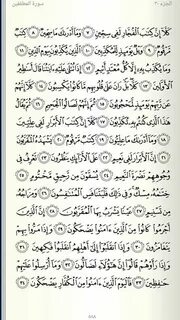 الجزء ٣٠ سورة المطففين
كَلَّا إِنَّ كِتَٰبَ ٱلْفُجَّارِ لَفِي سِجِّينٍ ٧ وَمَآ أَدْرَىٰكَ مَا سِجِّينٌ ٨ كِتَٰبٌ
مَّرْقُومٌ ٩ وَيْلٌ يَوْمَئِذٍ لِّلْمُكَذِّبِينَ ١٠ ٱلَّذِينَ يُكَذِّبُونَ بِيَوْمِ ٱلدِّينِ ١١
وَمَا يُكَذِّبُ بِهِۦٓ إِلَّا كُلُّ مُعْتَدٍ أَثِيمٍ ١٢ إِذَا تُتْلَىٰ عَلَيْهِ ءَايَٰتُنَا قَالَ أَسَٰطِيرُ
ٱلْأَوَّلِينَ ١٣ كَلَّا بَلْ رَانَ عَلَىٰ قُلُوبِهِم مَّا كَانُوا۟ يَكْسِبُونَ ١٤ كَلَّآ إِنَّهُمْ
عَن رَّبِّهِمْ يَوْمَئِذٍ لَّمَحْجُوبُونَ ١٥ ثُمَّ إِنَّهُمْ لَصَالُوا۟ ٱلْجَحِيمِ ١٦ ثُمَّ يُقَالُ
هَٰذَا ٱلَّذِي كُنتُم بِهِۦ تُكَذِّبُونَ ١٧ كَلَّآ إِنَّ كِتَٰبَ ٱلْأَبْرَارِ لَفِي عِلِّيِّينَ
١٨ وَمَآ أَدْرَىٰكَ مَا عِلِّيُّونَ ١٩ كِتَٰبٌ مَّرْقُومٌ ٢٠ يَشْهَدُهُ ٱلْمُقَرَّبُونَ
٢١ إِنَّ ٱلْأَبْرَارَ لَفِي نَعِيمٍ ٢٢ عَلَى ٱلْأَرَآئِكِ يَنظُرُونَ ٢٣ تَعْرِفُ فِي
وُجُوهِهِمْ نَضْرَةَ ٱلنَّعِيمِ ٢٤ يُسْقَوْنَ مِن رَّحِيقٍ مَّخْتُومٍ ٢٥
خِتَٰمُهُۥ مِسْكٌ وَفِي ذَٰلِكَ فَلْيَتَنَافَسِ ٱلْمُتَنَٰفِسُونَ ٢٦ وَمِزَاجُهُۥ
مِن تَسْنِيمٍ ٢٧ عَيْنًا يَشْرَبُ بِهَا ٱلْمُقَرَّبُونَ ٢٨ إِنَّ ٱلَّذِينَ
أَجْرَمُوا۟ كَانُوا۟ مِنَ ٱلَّذِينَ ءَامَنُوا۟ يَضْحَكُونَ ٢٩ وَإِذَا مَرُّوا۟ بِهِمْ
يَتَغَامَزُونَ ٣٠ وَإِذَا ٱنقَلَبُوٓا۟ إِلَىٰٓ أَهْلِهِمُ ٱنقَلَبُوا۟ فَكِهِينَ ٣١
وَإِذَا رَأَوْهُمْ قَالُوٓا۟ إِنَّ هَٰٓؤُلَآءِ لَضَآلُّونَ ٣٢ وَمَآ أُرْسِلُوا۟ عَلَيْهِمْ
حَٰفِظِينَ ٣٣ فَٱلْيَوْمَ ٱلَّذِينَ ءَامَنُوا۟ مِنَ ٱلْكُفَّارِ يَضْحَكُونَ ٣٤
٥٨٨